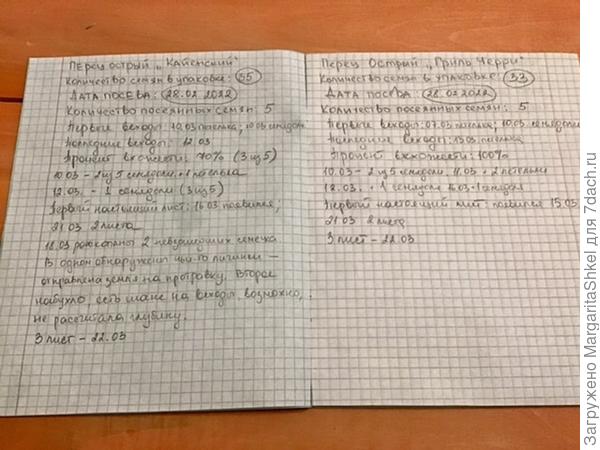 Перец острый „Кайенский"
Количество семян в упаковке: 35
Дата посева: 28.02 2022
Количество посеянных семян: 5
Первые всходы: 10.03 петелька, 10.03 семядоли
Последние всходы: 12.03
Процент всхожести: 70% (3 из 5)
10.03 – 2 из 5 семядоли + 1 петелька
12.03. – 1 семядоли (3 из 5)
Первый настоящий лист: 16.03 появился,
21.03 2 листа
18.03 раскопаны 2 невзошедших семечка
В одном обнаружены чьи-то личинки –
отправлена земля на протравку. Второе
набухло, есть шанс на всходы, возможно,
не рассчитала глубину.
3 лист – 22.03
Перец Острый „Гриль Черри"
Количество семян в упаковке: 33
Дата посева: 28.02 2022
Количество посеянных семян: 5
Первые всходы: 07.03 петелька, 10.03 семядоли
Последние всходы: 13.03 петелька
Процент всхожести: 100%
10.03 – 2 из 5 семядоли. 11.03 + 2 петельки
12.03. + 1 семядоли 16.03 + 1 семядоли
Первый настоящий лист: появился 15.03
21.03 2 листа
3 лист – 22.03
Загружено MargaritaShkel для 7dach.ru